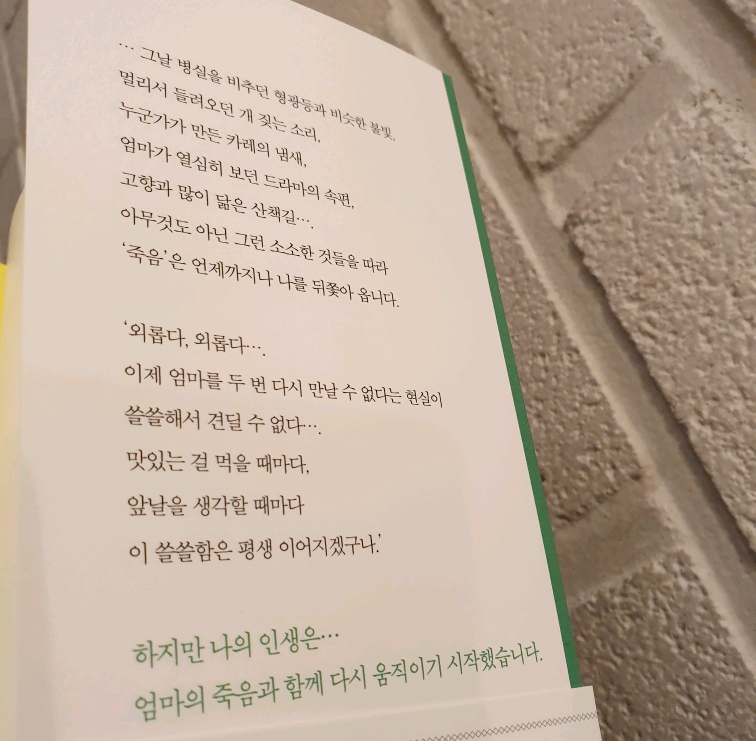 … 그날 병실을 비추던 형광등과 비슷한 불빛,
멀리서 들려오던 개 짖는 소리,
누군가가 만든 카레의 냄새,
엄마가 열심히 보던 드라마의 속편,
고향과 많이 닮은 산책길….
아무것도 아닌 그런 소소한 것들을 따라
‘죽음’은 언제까지나 나를 뒤쫓아 옵니다.
‘외롭다, 외롭다….
이제 엄마를 두 번 다시 만날 수 없다는 현실이
쓸쓸해서 견딜 수 없다….
맛있는 걸 먹을 때마다,
앞날을 생각할 때마다
이 쓸쓸함은 평생 이어지겠구나.’
하지만 나의 인생은…
엄마의 죽음과 함께 다시 움직이기 시작했습니다.